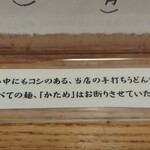 中にもコシのある、当店の手打ちうどん
べての麺、「かため」はお断りさせていた